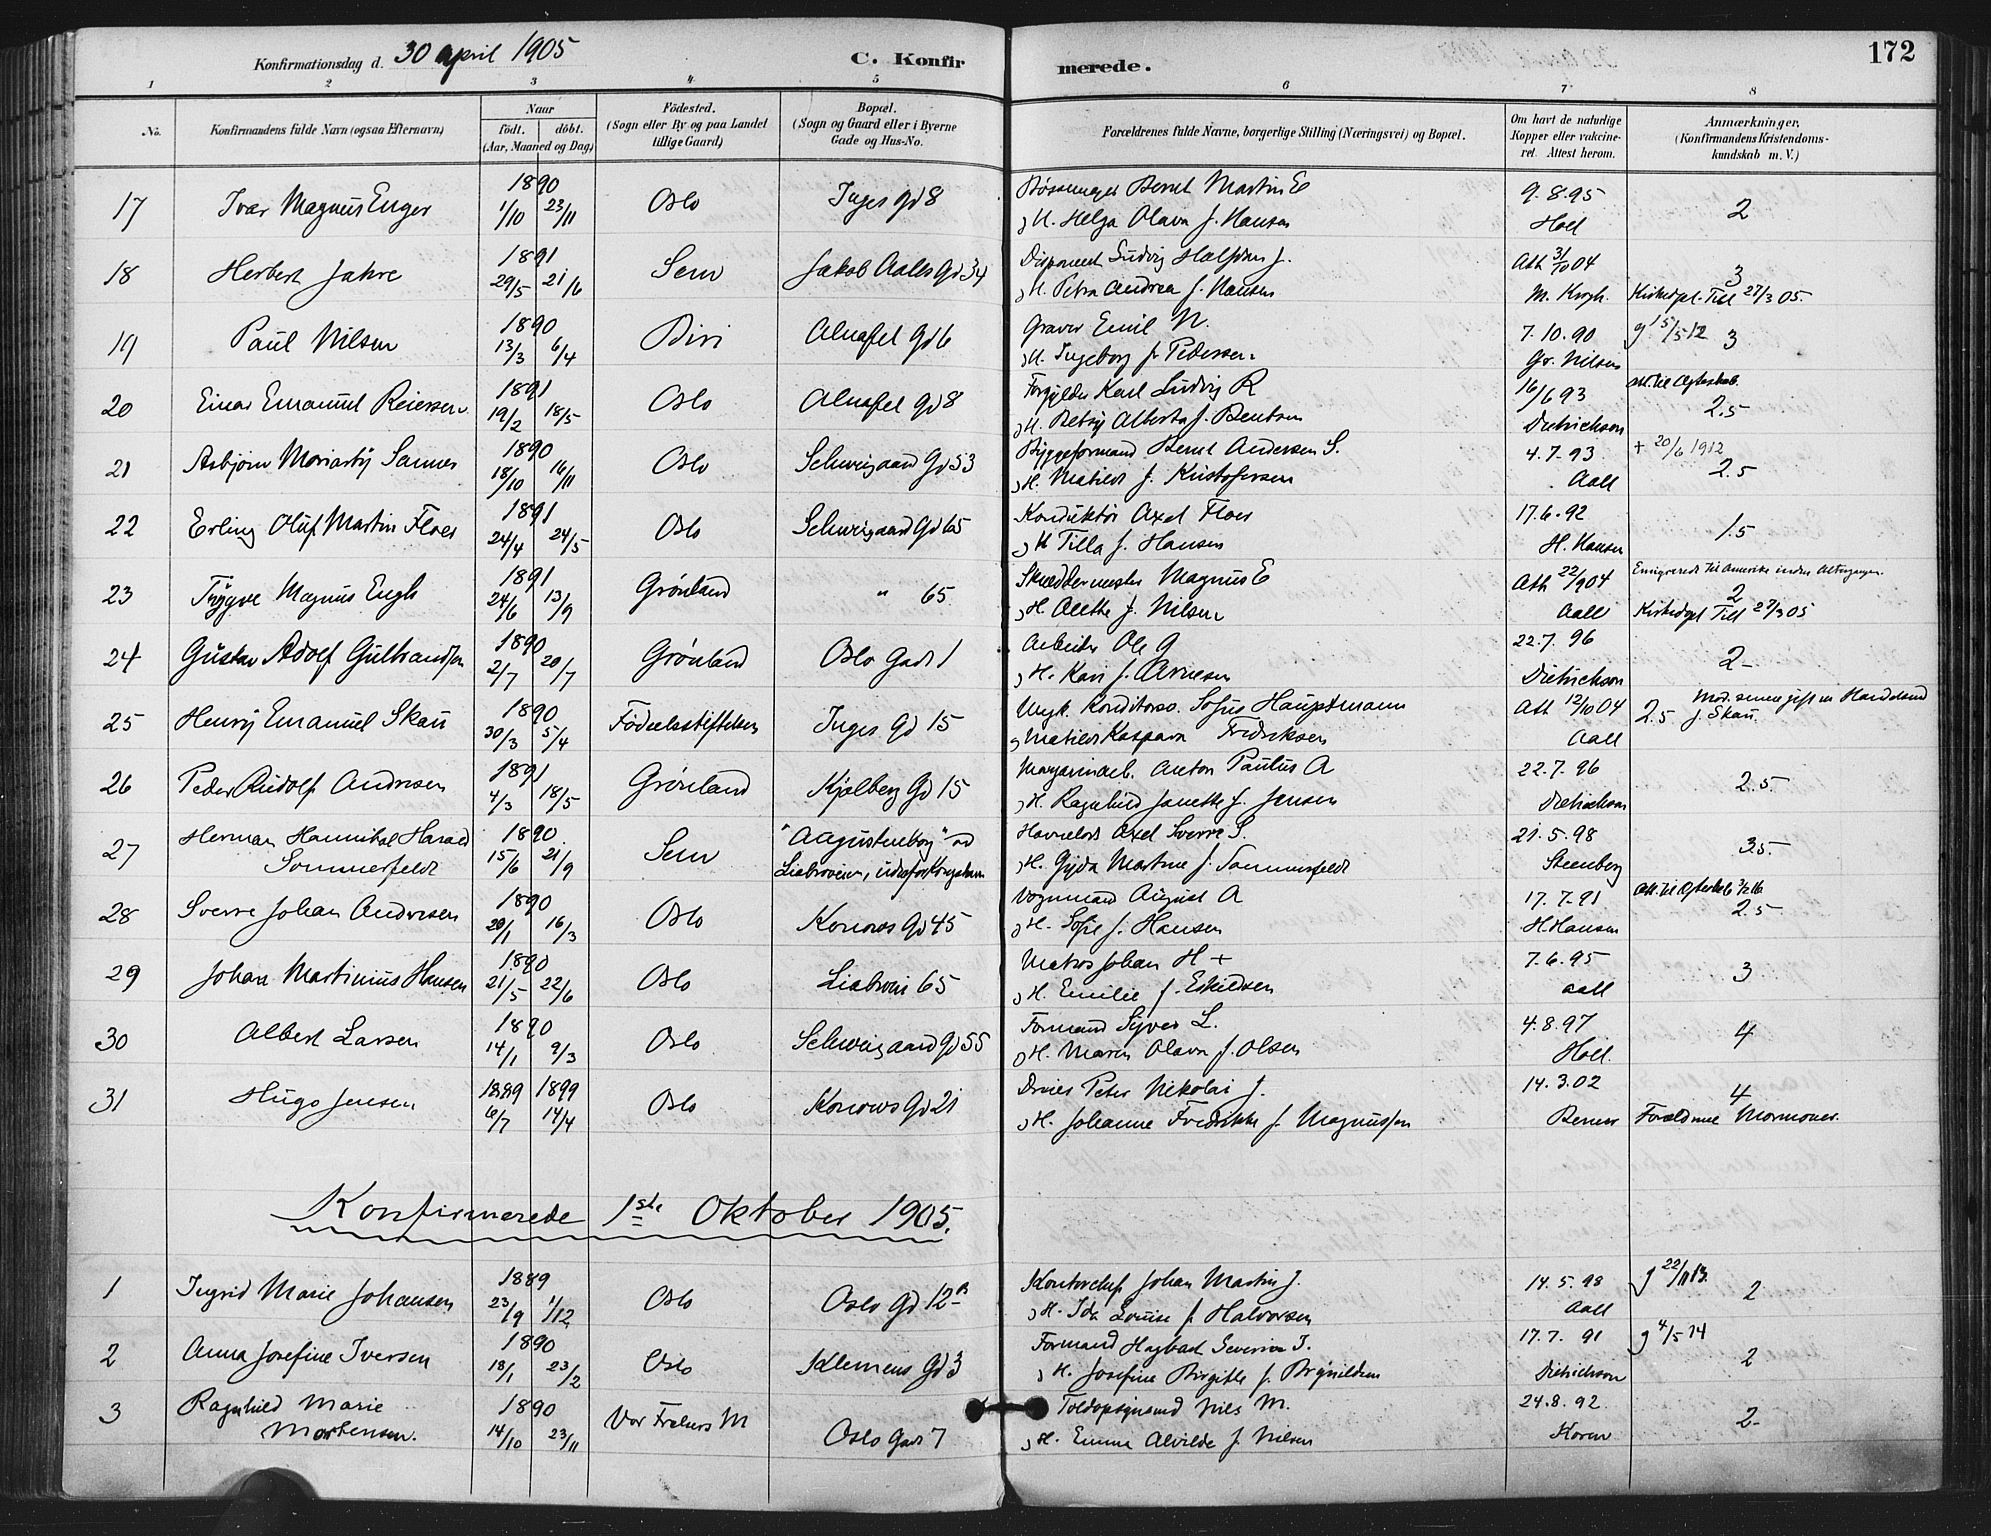 Konfirmationsdag d. 30 april 1905 C. Konfir merede. 172
1 2 3 4 5 6 7 8
No. Konfirmandens fulde Navn (ogsaa Efternavn) Naar födt. döbt. (Aar, Maaned og Dag) Födested. (Sogn eller By og paa Landet tillige Gaard) Bopæl. (Sogn og Gaard eller i Byerne Gade og Hus-No. Forældrenes fulde Navne, borgerlige Stilling (Næringsvei) og Bopæl. Om havt de naturlige Kopper eller vakcineret. Attest herom. Anmærkninger, (Konfirmandens Kristendomskundskab m. V.)
17 Ivar Magnus Enger 1890 1/10 23/11 Oslo Inges gd 8 Bernt Martin E 9.8.95
, H. Helga Olava f. Hansen Holl 2
18 Herbert Jahre 1891 29/5 21/6 Sem Jakob Aalls Gd 34 Disponent Ludvig Halfdan J. Att 3/10 04
, H. Petra Andrea f. Hansen M. Krogh. 3 Kirkedpt. Till 27/3 05.
19 Paul Nilsen 1890 13/3 6/4 Biri Alnafet Gd 6 Graver Emil N. 7.10.90 g 15/5 12
, H. Ingeborg f. Pedersen Gr. Nilsen 3
20 Einar Emanuel Reiersen 1891 19/2 18/5 Oslo Alnafet Gd 8 Forgylder Karl Ludvig R 16/6 93 Att. til Ægteskab.
, H. Betsy Alberta f. Bentsen Dietrichson 2.5
21 Asbjörn Moriarty Sannes 1890 18/10 16/11 Oslo Schweigaard Gd 53 Byggeformand Bernt Andersen S. 4.7.93 + 20/6 1912
, H. Matilde f. Kristofersen Aall 2.5
22 Erling Oluf Martin Floer 1891 24/4 24/5 Oslo Schweigaard Gd 65 Konduktör Axel Floer 17.6.92
, H Tilla f. Hansen H. Hansen 1.5
23 Trygve Magnus Engh 1891 24/6 13/9 Grönland " 65 Skræddermester Magnus E Att 22/9 04 Emigrerede til Amerika inden Altergangen.
, H. Alette f. Nilsen Aall 2 Kirkedpt Till 27/3 05
24 Gustav Adolf Gulbrandsen 1890 2/7 20/7 Grönland Oslo Gade 1 Arbeider Ole G 22.7.96
, H. Kari f. Arnesen Dietrichson 2-
25 Henry Emanuel Skau 1890 30/3 5/4 Födselsstiftelsen Inges Gd 15 Ungk. Konditorsv. Sofus Hauptmann Att 12/10 04 Mod. senere gift m Handelsmd
, Matilde Kaspara Fredriksen Aall 2.5 J. Skau.
26 Peder Rudolf Andresen 1891 4/3 18/5 Grönland Kjölberg Gd 15 Margarinarb. Anton Paulus A 22.7.96
, H. Ragnhild Janette f. Jensen Dietrichson 2.5.
27 Herman Hannibal Harald 1890 15/6 21/9 Sem "Augustenborg" ved Havnelods Axel Sverre S. 21.5.98
Sommerfeldt Liabroveien, udenfor Kongshavn , H. Gyda Martine f. Sommerfeldt Steenberg 3.5.
28 Sverre Johan Andresen 1890 20/1 16/3 Oslo Konows Gd 45 Vognmand August A 17.7.91 Att. til Ægtesk.
, H. Sofie f. Hansen H Hansen 2.5
29 Johan Martinius Hansen 1890 21/5 22/6 Oslo Liabrovei 65 Matros Johan H + 7.6.95
, H. Emilie f. Eskildsen Aall 3
30 Albert Larsen 1890 14/1 9/3 Oslo Schweigaard Gd 55 Formand Syver L. 4.8.97
, H. Maren Olava f. Olsen Holl. 4
31 Hugo Jensen 1889 1899 6/7 14/4 Oslo Konows Gd 21 Dreier Peter Nikolai J. 14.3.02
, H. Johanne Fredrikke f. Magnussen Berner 4 Forældrene Mormoner.
Konfirmerede 1ste Oktober 1905.
1 Ingrid Marie Johansen 1889 23/9 1/12 Oslo Oslo Gd 12 B Kontorchef Johan Martin J. 14.5.98 g 22/11 13.
, H. Ida Louise f. Halvorsen Aall 2
2 Anna Josefine Iversen 1890 18/1 23/2 Oslo Klemens Gd 3 Formand Hagbart Severin I. 17.7.91 g 4/5 14
, H. Josefine Birgitte f. Brynildsen Dietrichson 2
3 Ragnhild Marie 1890 14/10 23/11 Vor Frelsers M Oslo Gade 7 Toldopsynsmd Nils M. 24.8.92
Mortensen. , H. Emma Alvilde f. Nilsen Koren 2-